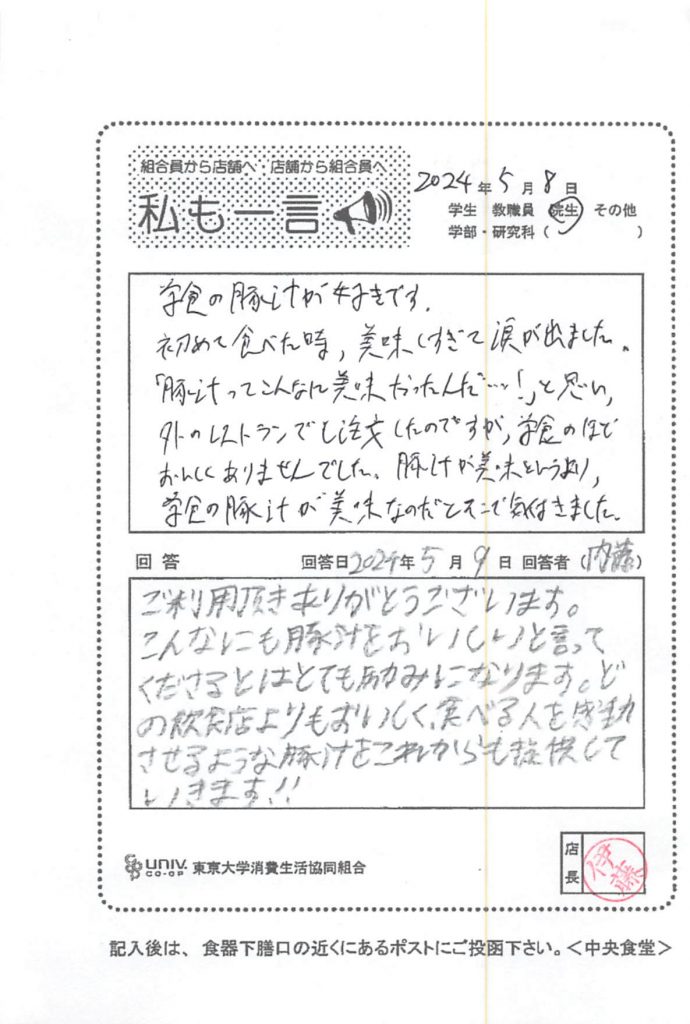 組合員から店舗へ・店舗から組合員へ
私も一言
2024年5月8日
学生 教職員 院生 その他
学部・研究科（ ）
学食の豚汁が好きです。
初めて食べた時，美味しすぎて涙が出ました。
「豚汁ってこんなに美味だったんだ…！」と思い，
外のレストランでも注文したのですが，学食のほど
おいしくありませんでした。豚汁が美味というより，
学食の豚汁が美味なのだとそこで気付きました。
回答 回答日2024年5月9日 回答者（内藤）
ご利用頂きありがとうございます。
こんなにも豚汁をおいしいと言って
くださるとはとても励みになります。ど
の飲食店よりもおいしく、食べる人を感動
させるような豚汁をこれからも提供して
いきます!!
UNIV. CO-OP 東京大学消費生活協同組合
店長 伊藤
記入後は、食器下膳口の近くにあるポストにご投函下さい。＜中央食堂＞